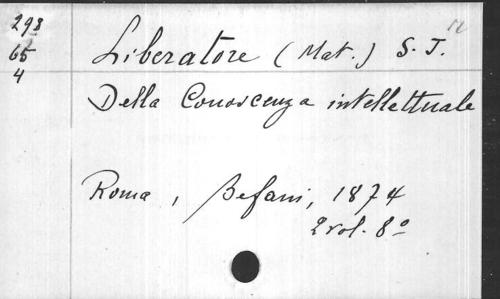 298
65
4
Liberatore (Mat.) S. J.
Della Conoscenza intellettuale
Roma, Befani, 1874
2 vol. 8º